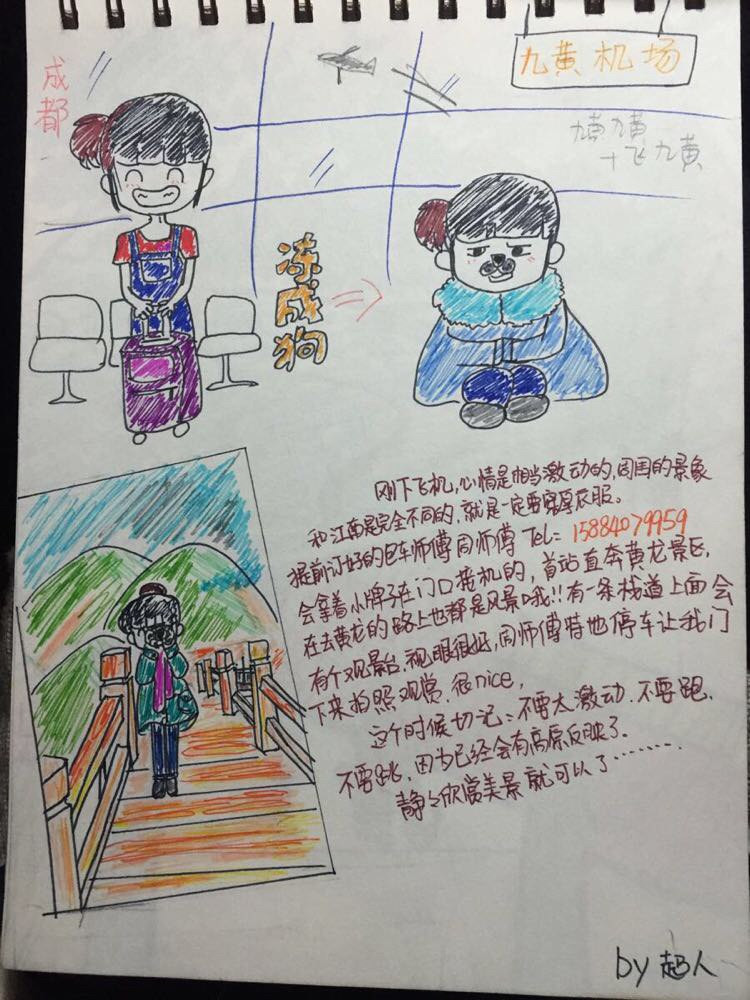 九黄机场
成都
九黄九黄
十飞九黄
冻成狗
刚下飞机,心情是相当激动的,周围的景象
和江南是完全不同的,就是一定要穿厚衣服。
提前订好的包车师傅周师傅 Tel: 15884079959
会拿着小牌子在门口接机的,首站直奔黄龙景区,
在去黄龙的路上也都是风景哦!!有一条栈道上面会
有个观景台,视眼很好,周师傅特地停车让我们
下来拍照观赏.很nice,
这个时候切记:不要太激动.不要跑.
不要跳,因为已经会有高原反映了.
静静欣赏美景就可以了········
by 超人